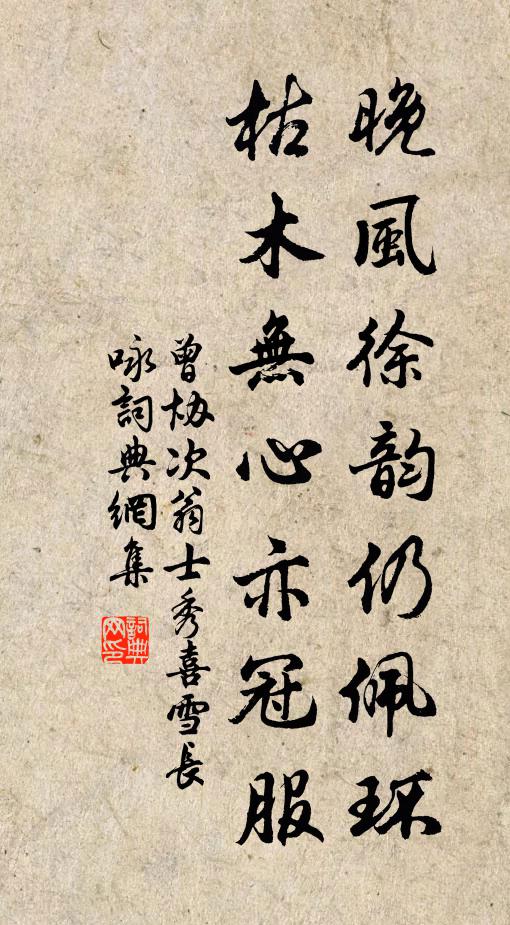 晚風徐韵仍佩環
枯木無心亦冠服
曾協次翁士秀喜雪長
咏詞典網集
詞典
网印